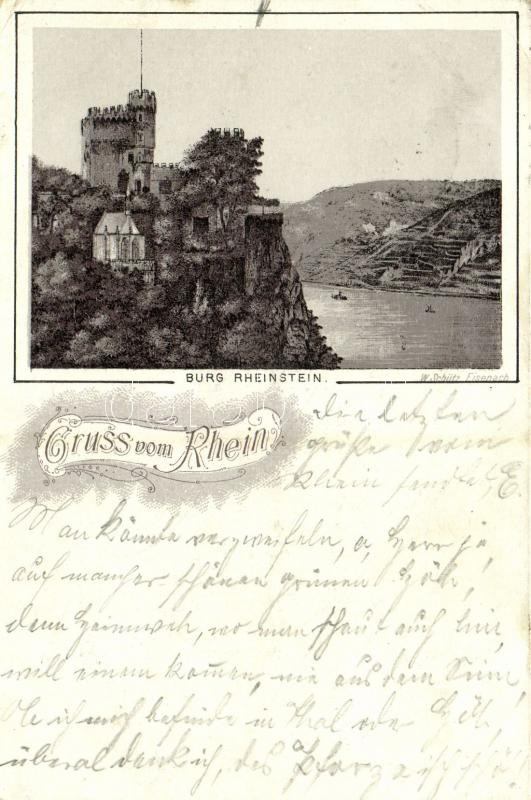 BURG RHEINSTEIN.
W. Schütz, Eisenach
Gruss vom Rhein
die letzten
grüße vom
Rhein sendet, E
Man könnte verzweifeln, o Herr je,
auf mancher schönen grünen Höh,
denn Heimweh, wo man schaut auch hin,
will einem kommen, nie aus dem Sinn,
Ob ich mich befinde in Thal oder Höh,
überal denk ich, das Pforza ist schö!